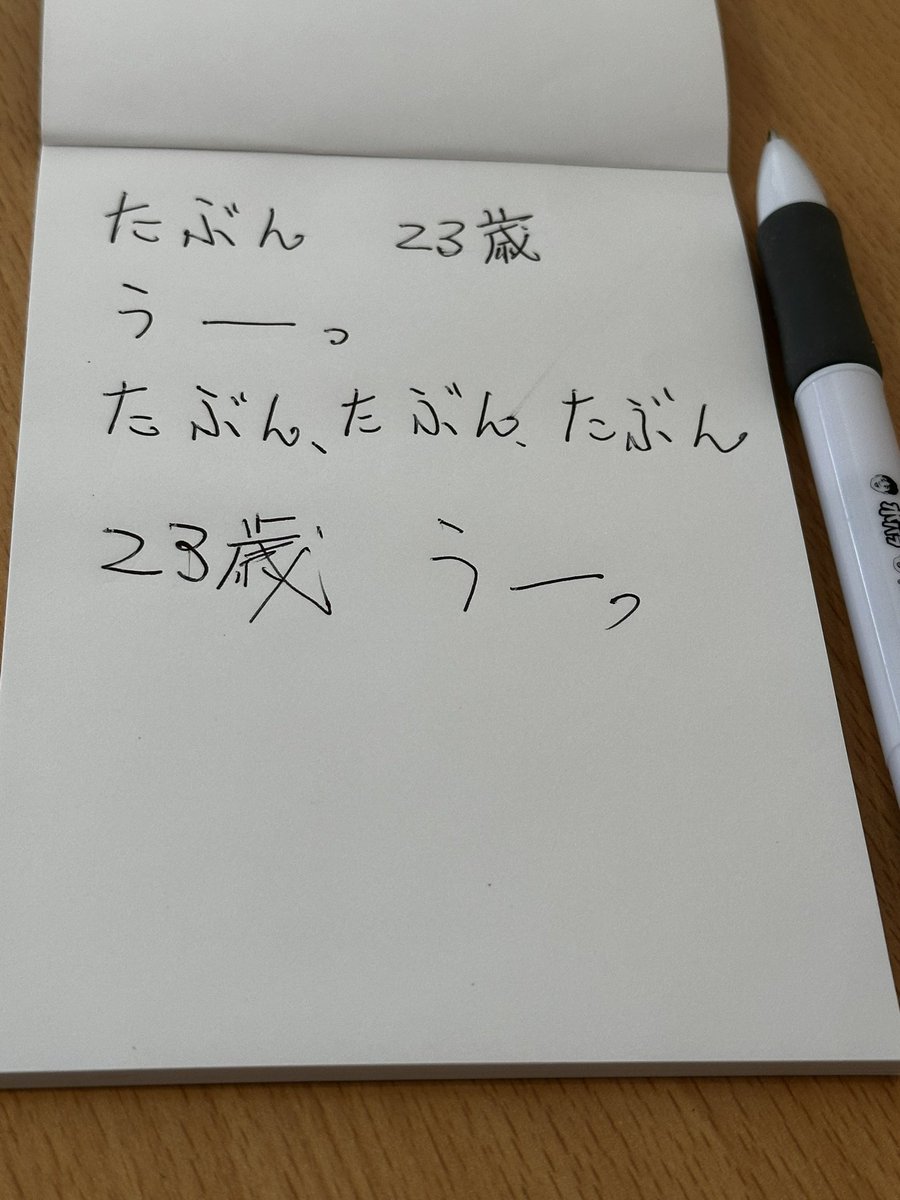 たぶん 23歳
うーっ
たぶん、たぶん、たぶん
23歳 うーっ